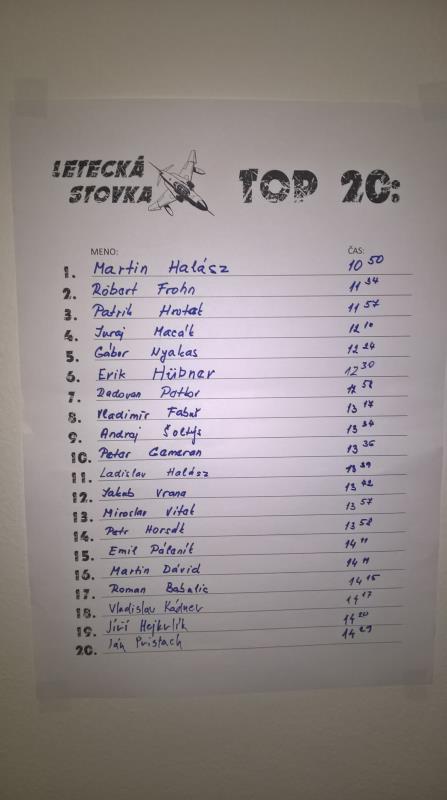 LETECKÁ
STOVKA
TOP 20:
MENO: ČAS:
1. Martin Halász 10 50
2. Róbert Frohn 11 34
3. Patrik Hrotek 11 57
4. Juraj Macák 12 10
5. Gábor Nyakas 12 24
6. Erik Hübner 12 30
7. Radovan 12 58
8. Vladimír Fabuš 13 17
9. Andrej Šoltýs 13 34
10. Peter Cameran 13 36
11. Ladislav Halász 13 39
12. Jakub Vrana 13 42
13. Miroslav Vitek 13 57
14. Petr Horsák 13 58
15. Emil Páleník 14 11
16. Martin Dávid 14 11
17. Roman Babalic 14 15
18. Vladislav Kádner 14 17
19. Jiří Hejkrlík 14 20
20. Ján Pristach 14 29